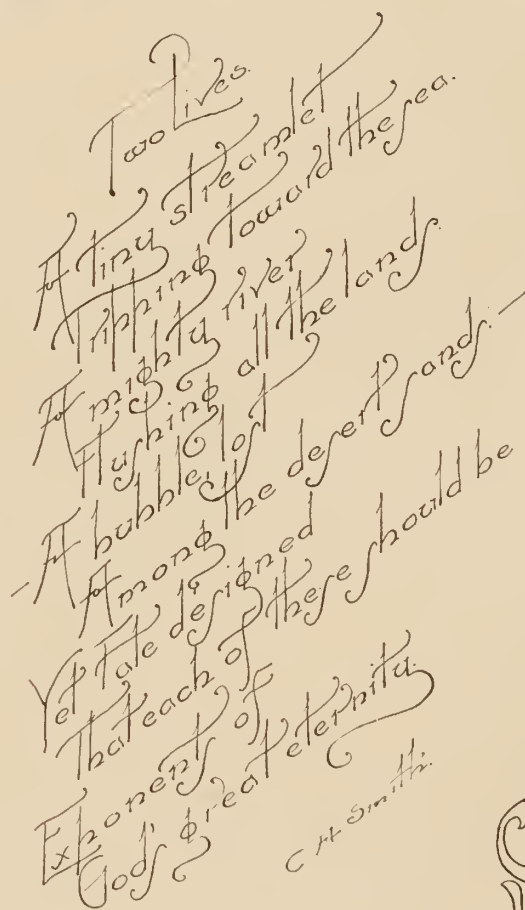 Two Lives.
A tiny streamlet
Tripping toward the sea.
A mighty river
Flushing all the lands.
A bubble, lost —
Among the desert sands: —
Yet Fate designed
That each of these should be
Exponents of
God's great eternity.
C H Smith.